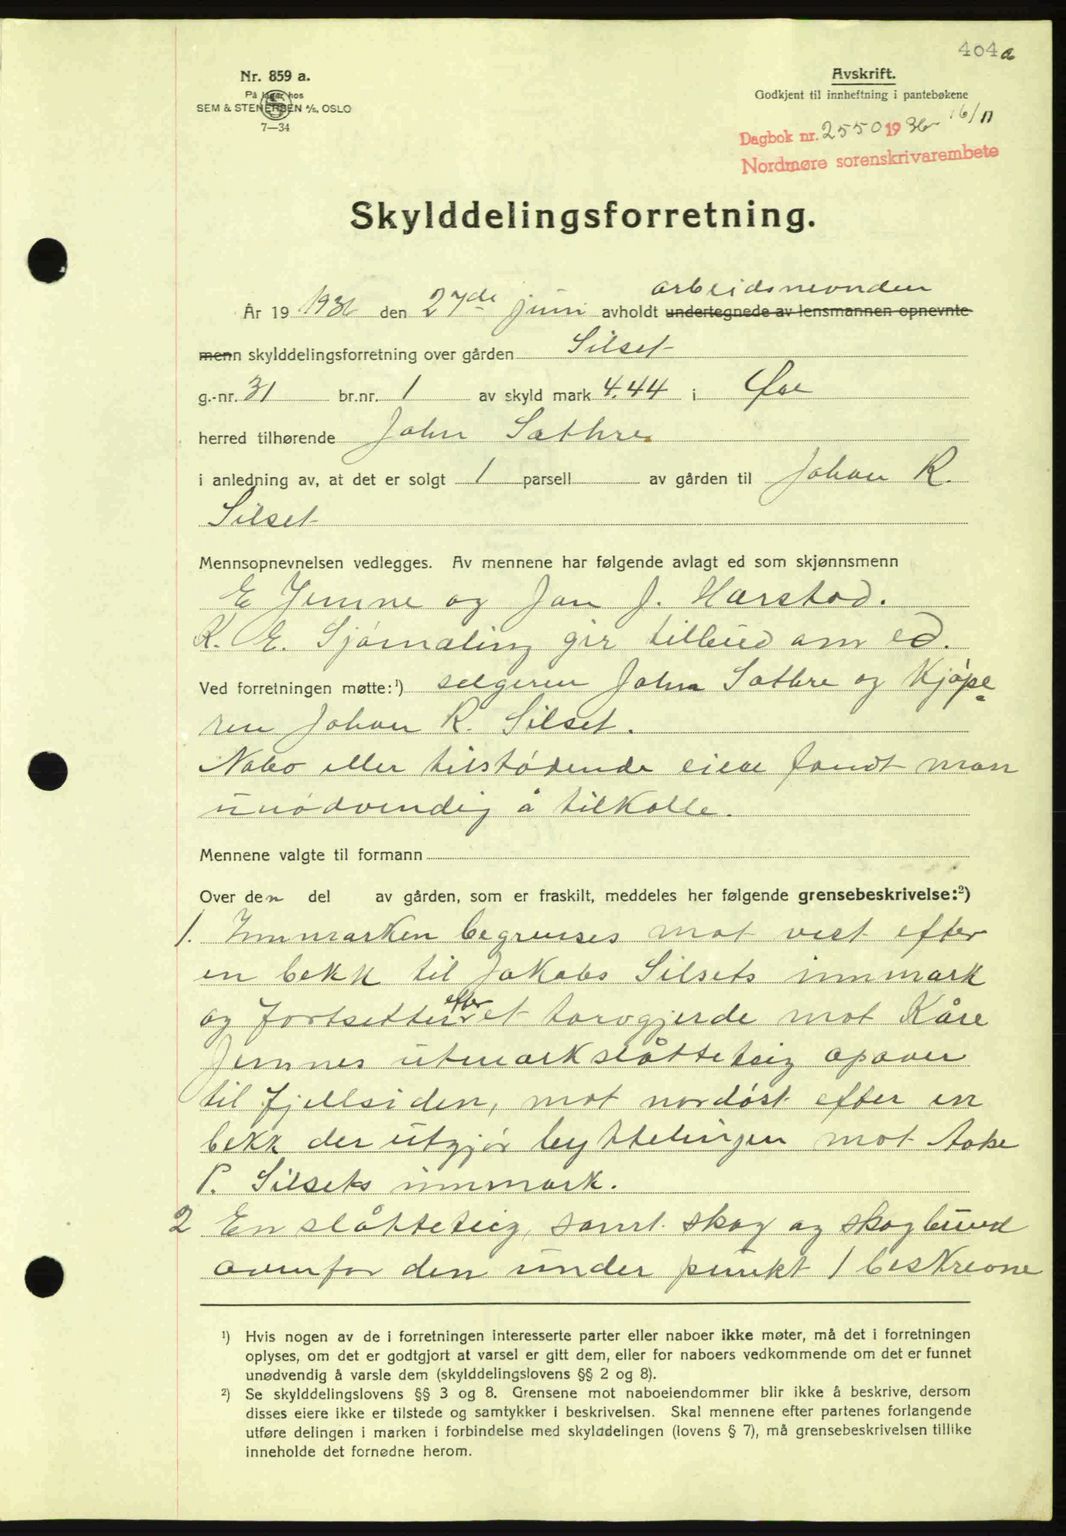 404 a
Nr. 859 a.
På lager hos
SEM & STENERSEN A/S, OSLO
7—34
Avskrift.
Godkjent til innheftning i pantebøkene
Dagbok nr. 2550 1936 16/11
Nordmøre sorenskrivarembete
Skylddelingsforretning.
arbeidsnevnden
År 19 1936 den 27de juni avholdt undertegnede av lensmannen opnevnte
menn skylddelingsforretning over gården Silset
g.-nr. 31 br.nr. 1 av skyld mark 4.44 i Øre
herred tilhørende John Sæthre
i anledning av, at det er solgt 1 parsell av gården til Johan R.
Silset
Mennsopnevnelsen vedlegges. Av mennene har følgende avlagt ed som skjønnsmenn
E Jemne og Jon J. Harstad.
K. E. Sjømæling gir tilbud om ed.
Ved forretningen møtte:¹) selgeren John Sæthre og Kjøpe
ren Johan R. Silset.
Nabo eller tilstødende eiere fandt man
unødvendig å tilkalle.
Mennene valgte til formann
Over den del av gården, som er fraskilt, meddeles her følgende grensebeskrivelse:²)
1. Innmarken begrenses mot vest efter
en bekk til Jakobs Silsets innmark
efter
og fortsetter et torvgjerde mot Kåre
Jemnes utmarkslåtteteig opover
til fjellsiden, mot nordøst efter en
bekk der utgjør byttelinjen mot
P. Silsets innmark.
2 En slåtteteig, samt skog og skogbund
ovenfor den under punkt 1 beskrevne
¹) Hvis nogen av de i forretningen interesserte parter eller naboer ikke møter, må det i forretningen
oplyses, om det er godtgjort at varsel er gitt dem, eller for naboers vedkommende om det er funnet
unødvendig å varsle dem (skylddelingslovens §§ 2 og 8).
²) Se skylddelingslovens §§ 3 og 8. Grensene mot naboeiendommer blir ikke å beskrive, dersom
disses eiere ikke er tilstede og samtykker i beskrivelsen. Skal mennene efter partenes forlangende
utføre delingen i marken i forbindelse med skylddelingen (lovens § 7), må grensebeskrivelsen tillike
inneholde det fornødne herom.